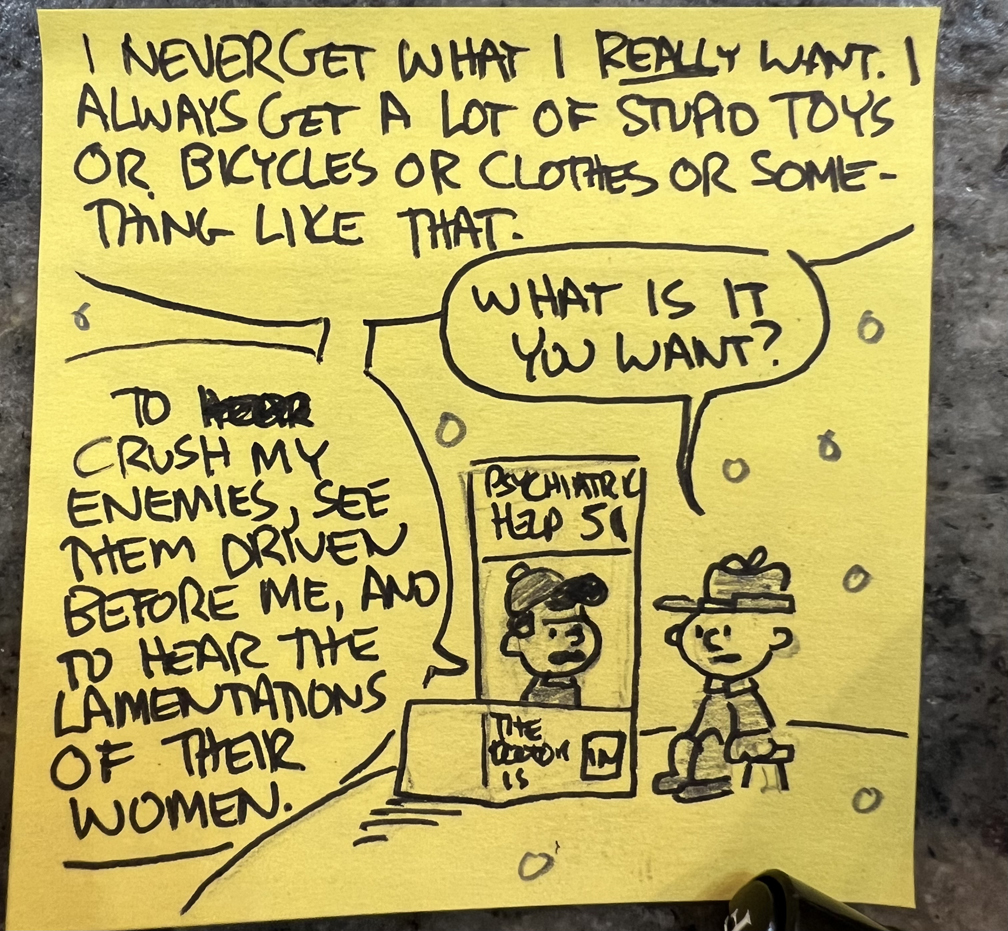 I NEVER GET WHAT I REALLY WANT. I
ALWAYS GET A LOT OF STUPID TOYS
OR BICYCLES OR CLOTHES OR SOME-
THING LIKE THAT.
WHAT IS IT
YOU WANT?
TO
CRUSH MY
ENEMIES, SEE
THEM DRIVEN
BEFORE ME, AND
TO HEAR THE
LAMENTATIONS
OF THEIR
WOMEN.
PSYCHIATRIC
HELP 5¢
THE
DOCTOR
IS
IN